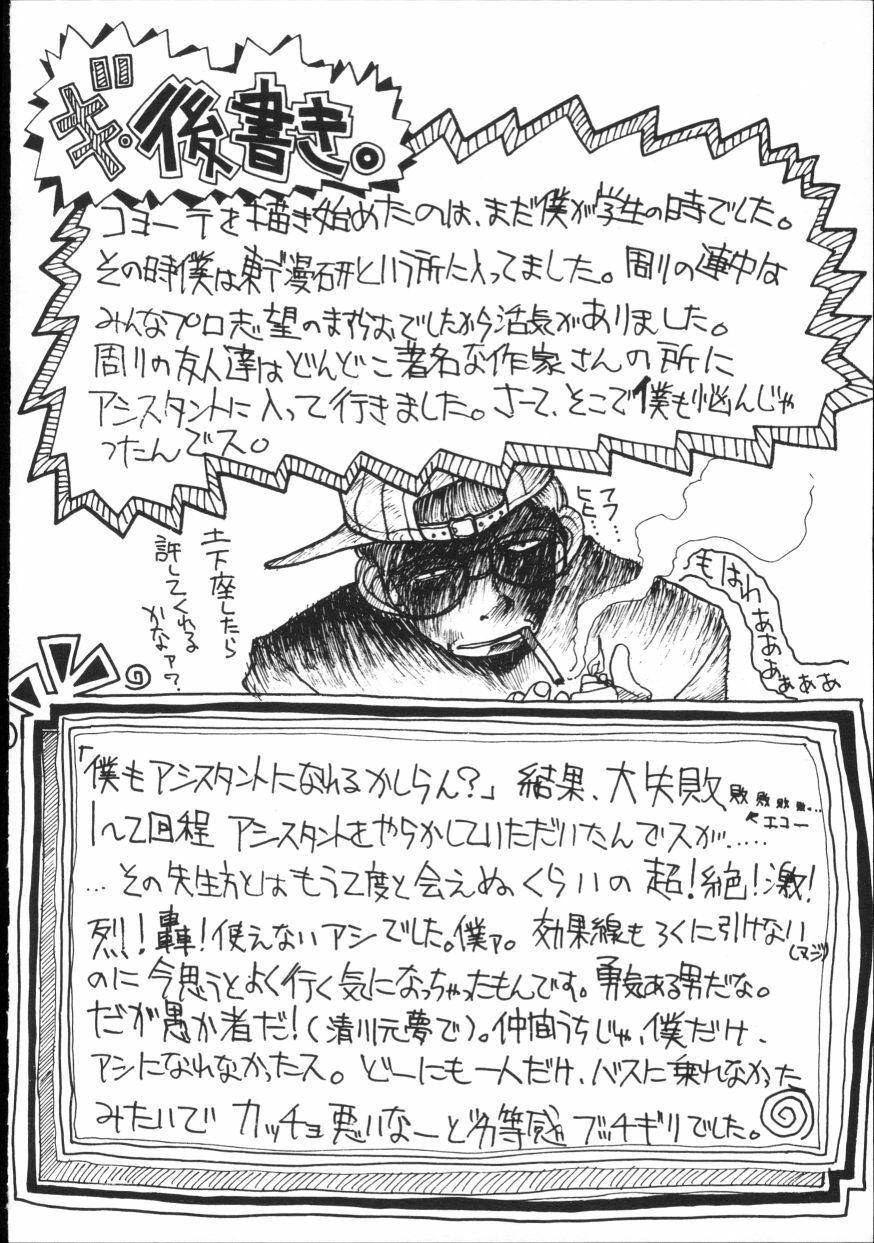 ギ・後書き。
コヨーテを描き始めたのは、まだ僕が学生の時でした。
その時僕は東デ漫研という所に入ってました。周りの連中は
みんなプロ志望のますらおでしたから活気がありました。
周りの友人達はどんどこ著名な作家さんの所に
アシスタントに入って行きました。さーて、そこで僕も悩んじゃ
ったんでス。
ヒヒ…
フフ…
土下座したら
許してくれる
かなァ?
もはわぁあああぁぁぁ
「僕もアシスタントになれるかしらん?」結果、大失敗敗敗敗敗…
エコー
1〜2回程 アシスタントをやらかしていただいたんでスが.....
…その先生方とはもう2度と会えぬくらいの超!絶!激!
烈!轟!使えないアシでした。僕ァ。効果線もろくに引けない
(マジ)
のに今思うとよく行く気になっちゃったもんです。勇気ある男だな。
だが愚か者だ!(清川元夢で)。仲間うちじゃ、僕だけ、
アシになれなかったス。どーにも一人だけ、バスに乗れなかった
みたいで カッチョ悪いなーと劣等感ブッチギリでした。